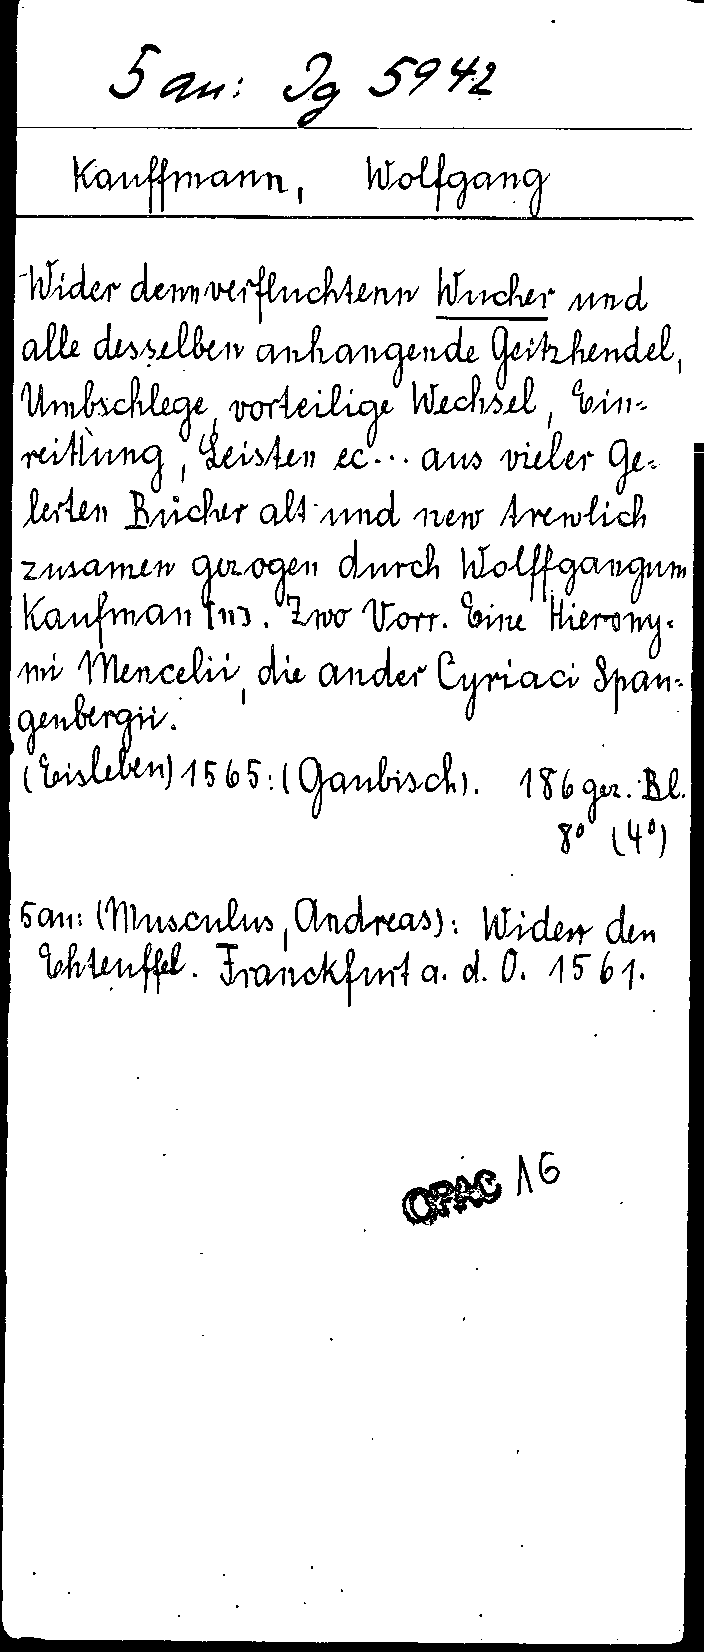 5 an: Jg 5942
Kauffmann, Wolfgang
Wider denn verfluchtenn Wucher und
alle desselben anhangende Geitzhendel,
Umbschlege, vorteilige Wechsel, Ein-
reittung, Leisten ec... aus vieler Ge-
lerten Bücher alt und new trewlich
zusamen gezogen durch Wolffgangum
Kaufman [n]. Zwo Vorr. Eine Hierony-
mi Mencelii, die ander Cyriaci Span-
genbergii.
(Eisleben) 1565: (Gaubisch). 186 gez. Bl.
8° (4°)
5 an: (Musculus, Andreas): Wider den
Ehteuffel. Franckfurt a. d. O. 1561.
OPAC 16